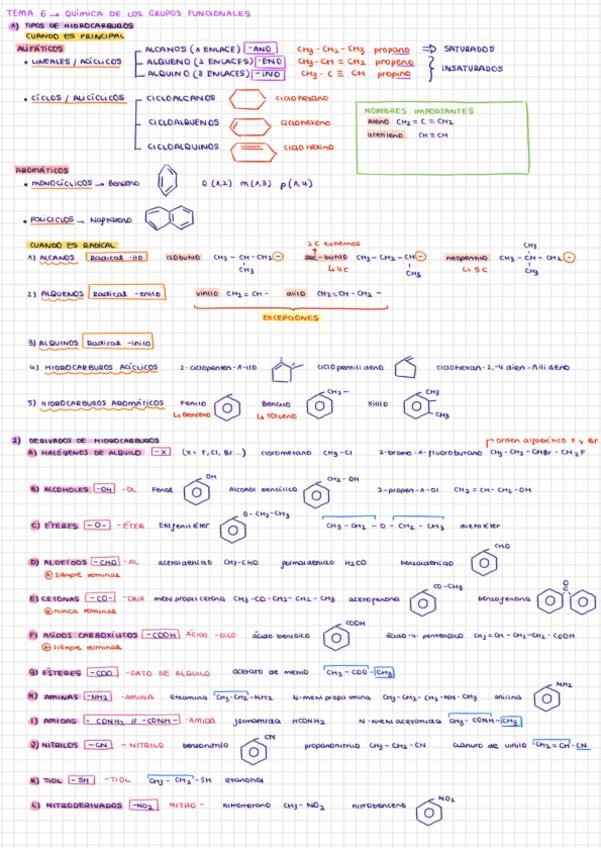 TEMA 6 → QUÍMICA DE LOS GRUPOS FUNCIONALES
1) TIPOS DE HIDROCARBUROS
CUANDO ES PRINCIPAL
ALIFÁTICOS
• LINEALES / ACÍCLICOS
ALCANOS (1 ENLACE) -ANO CH3-CH2-CH3 propano ⇒ SATURADOS
ALQUENO (2 ENLACES) -ENO CH3-CH=CH2 propeno
ALQUINO (3 ENLACES) -INO CH3-C≡CH propino
INSATURADOS
• CÍCLOS / ALICÍCLICOS
CICLOALCANOS ciclohexano
CICLOALQUENOS ciclohexeno
CICLOALQUINOS ciclohexino
NOMBRES IMPORTANTES
aleno CH2=C=CH2
acetileno CH≡CH
AROMÁTICOS
• MONOCÍCLICOS → Benceno O (1,2) m (1,3) p (1,4)
• POLICICLOS → Naftaleno
CUANDO ES RADICAL
2 C extremos
1) ALCANOS Radical -ilo isobutilo CH3-CH-CH2- CH3 sec-butilo CH3-CH2-CH- CH3 neopentilo CH3-C-CH2- CH3 CH3
↳ 4C ↳ 5C
2) ALQUENOS Radical -enilo vinilo CH2=CH- alilo CH2=CH-CH2-
EXCEPCIONES
3) ALQUINOS Radical -inilo
4) HIDROCARBUROS ACÍCLICOS 2-ciclopenten-1-ilo ciclopentilideno ciclohexan-2,4-dien-1-ilideno
5) HIDROCARBUROS AROMÁTICOS Fenilo Bencilo CH2- Xililo CH3 CH3
↳ Benceno ↳ Tolueno
2) DERIVADOS DE HIDROCARBUROS
orden alfabético F y Br
A) HALÓGENOS DE ALQUILO -X (X= F, Cl, Br...) clorometano CH3-Cl 2-bromo-1-fluorobutano CH3-CH2-CHBr-CH2F
B) ALCOHOLES -OH -OL Fenol OH Alcohol bencílico CH2-OH 2-propen-1-ol CH2=CH-CH2-OH
C) ÉTERES -O- -ÉTER Etilfenil éter O-CH2-CH3 CH3-CH2-O-CH2-CH3 dietil éter
D) ALDEÍDOS -CHO -AL acetaldehído CH3-CHO formaldehído H2CO benzaldehído CHO
siempre terminal
E) CETONAS -CO- -ONA metil propil cetona CH3-CO-CH2-CH2-CH3 acetofenona CO-CH3 benzofenona O C
nunca terminal
F) ACIDOS CARBOXÍLICOS -COOH ÁCIDO -OICO ácido benzoico COOH ácido-4-pentenoico CH2=CH-CH2-CH2-COOH
siempre terminal
G) ÉSTERES -COO -OATO DE ALQUILO acetato de metilo CH3-COO-CH3
H) AMINAS -NH2 -AMINA etilamina CH3-CH2-NH2 N-metil propilamina CH3-CH2-CH2-NH-CH3 anilina NH2
I) AMIDAS -CONH2 // -CONH- -AMIDA formamida HCONH2 N-metilacetamida CH3-CONH-CH3
J) NITRILOS -CN -NITRILO benzonitrilo CN propanonitrilo CH3-CH2-CN cianuro de vinilo CH2=CH-CN
K) TIOL -SH -TIOL CH3-CH2-SH etanotiol
L) NITRODERIVADOS -NO2 NITRO- nitrometano CH3-NO2 nitrobenceno NO2